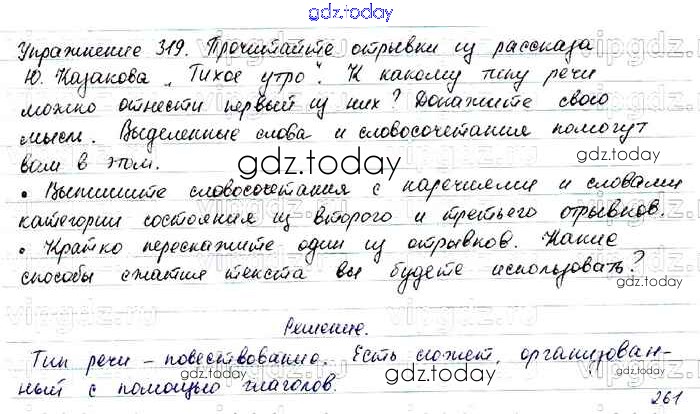 gdz.today
Упражнение 319. Прочитайте отрывки из рассказа
Ю. Казакова „Тихое утро". К какому типу речи
можно отнести первый из них? Докажите свою
мысль. Выделенные слова и словосочетания помогут
вам в этом.
gdz.today gdz.today
• Выпишите словосочетания с наречиями и словами
категории состояния из второго и третьего отрывков.
• Кратко перескажите один из отрывков. Какие
способы сжатия текста вы будете использовать?
gdz.today
Решение.
Тип речи – повествование. Есть сюжет, организован-
ный с помощью глаголов.
gdz.today
261